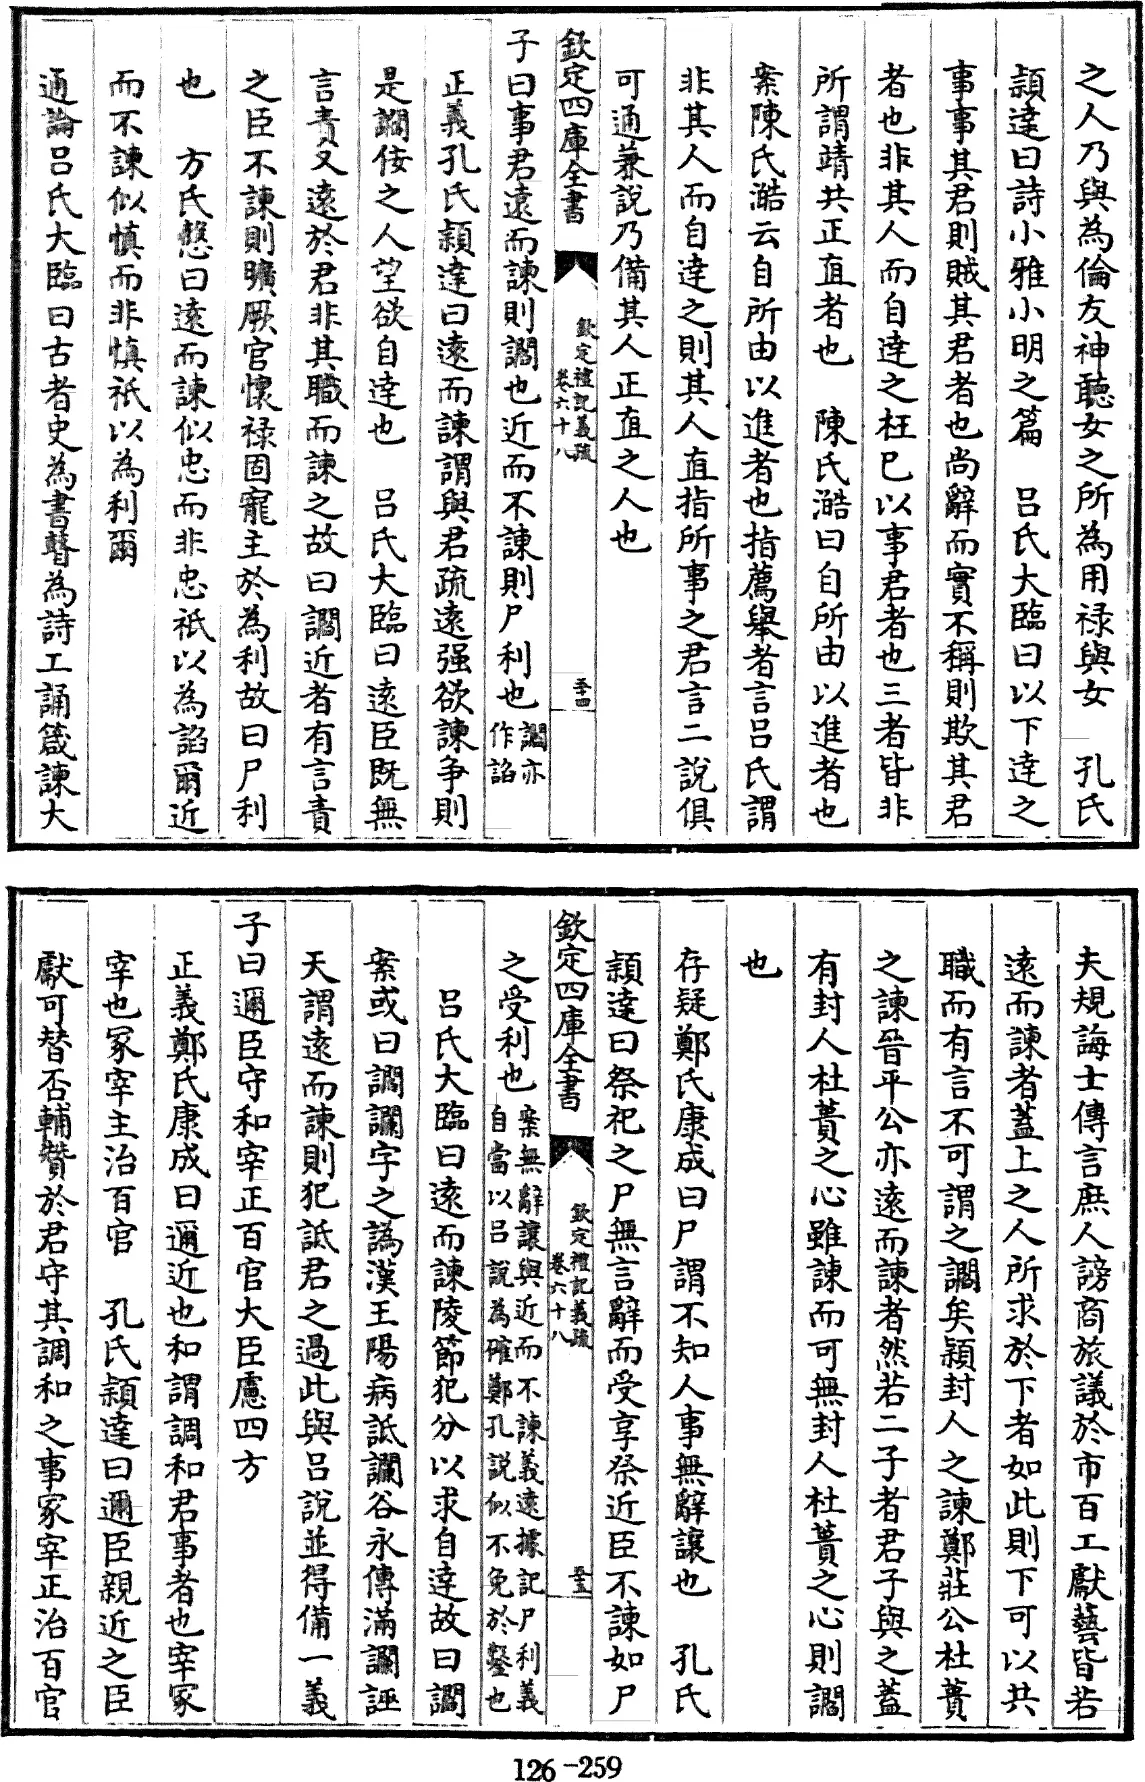 之人乃與為倫友神聽女之所為用禄與女　孔氏
穎達曰詩小雅小明之篇　吕氏大臨曰以下達之
事事其君則賊其君者也尚辭而實不稱則欺其君
者也非其人而自達之枉已以事君者也三者皆非
所謂靖共正直者也　陳氏澔曰自所由以進者也
案陳氏澔云自所由以進者也指薦舉者言吕氏謂
非其人而自達之則其人直指所事之君言二說俱
可通兼說乃備其人正直之人也
欽定四庫全書
欽定禮記義疏
卷六十八
五十四
子曰事君遠而諫則讇也近而不諫則尸利也讇亦
作諂
正義孔氏穎達曰遠而諫謂與君疏遠强欲諫争則
是讇佞之人望欲自達也　吕氏大臨曰遠臣既無
言責又遠於君非其職而諫之故曰讇近者有言責
之臣不諫則曠厥官懷禄固寵主於為利故曰尸利
也　方氏慤曰遠而諫似忠而非忠祇以為諂爾近
而不諫似慎而非慎祇以為利爾
通論吕氏大臨曰古者史為書瞽為詩工誦箴諫大
夫規誨士傳言庶人謗商旅議於市百工獻藝皆若
遠而諫者葢上之人所求於下者如此則下可以共
職而有言不可謂之讇矣潁封人之諫鄭莊公杜蕢
之諫晉平公亦遠而諫者然若二子者君子與之葢
有封人杜蕢之心雖諫而可無封人杜蕢之心則讇
也
存疑鄭氏康成曰尸謂不知人事無辭讓也　孔氏
穎達曰祭祀之尸無言辭而受享祭近臣不諫如尸
欽定四庫全書
欽定禮記義疏
卷六十八
五十五
之受利也案無辭讓與近而不諫義遠據記尸利義
自當以吕說為確鄭孔說似不免於鑿也
吕氏大臨曰遠而諫陵節犯分以求自達故曰讇
案或曰讇讕字之譌漢王陽病詆讕谷永傳滿讕誣
天謂遠而諫則犯詆君之過此與吕說並得備一義
子曰邇臣守和宰正百官大臣慮四方
正義鄭氏康成曰邇近也和謂調和君事者也宰冢
宰也冢宰主治百官　孔氏穎達曰邇臣親近之臣
獻可替否輔贊於君守其調和之事冢宰正治百官
126-259